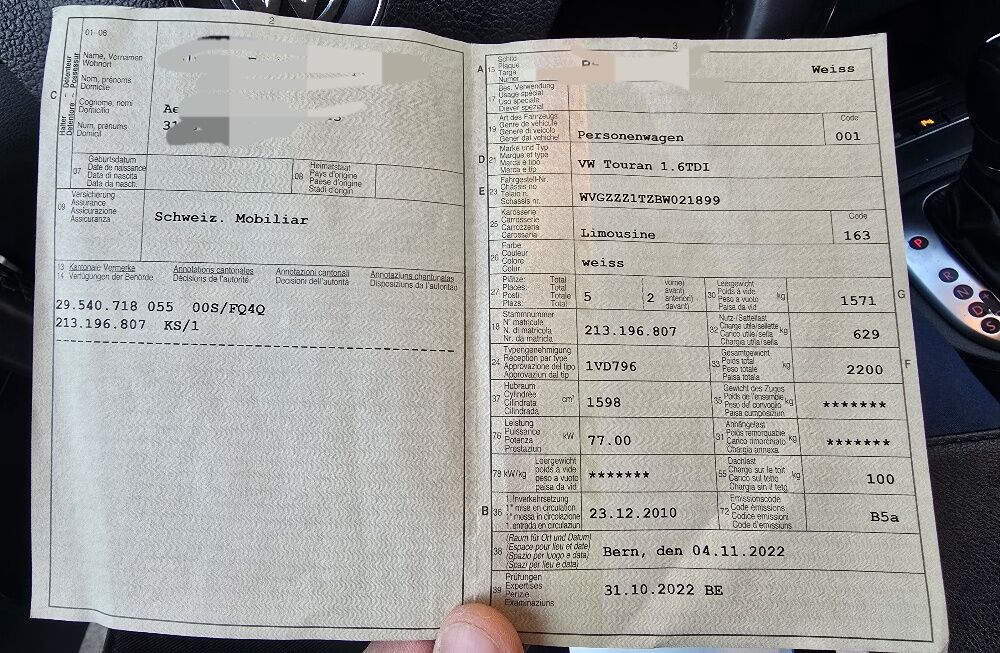 2
01-06
Détenteur Possessur
C
Halter Detentore
Name, Vornamen
Wohnort
Nom, prénoms
Domicile
Cognome, nomi
Domicilio
Num, prenums
Domicil
Ae
31
07
Geburtsdatum
Date de naissance
Data di nascita
Data da nasch.
08
Heimatstaat
Pays d'origine
Paese d'origine
Stadi d'origin
09
Versicherung
Assurance
Assicurazione
Assicuranza
Schweiz. Mobiliar
13 Kantonale Vermerke
14 Verfügungen der Behörde
Annotations cantonales
Décisions de l'autorité
Annotazioni cantonali
Decisioni dell'autorità
Annotaziuns chantunalas
Disposiziuns da l'autoritad
29.540.718 055 00S/FQ4Q
213.196.807 KS/1
3
A 15
Schild
Plaque
Targa
Numer
Weiss
17
Bes. Verwendung
Usage spécial
Uso speciale
Diever spezial
19
Art des Fahrzeugs
Genre de véhicule
Genere di veicolo
Gener dal vehichel
Personenwagen
Code
001
D 21
Marke und Typ
Marque et type
Marca e tipo
Marca e tip
VW Touran 1.6TDI
E 23
Fahrgestell-Nr.
Châssis no
Telaio n.
Schassis nr.
WVGZZZ1TZBW021899
25
Karosserie
Carrosserie
Carrozzeria
Carossaria
Limousine
Code
163
26
Farbe
Couleur
Colore
Colur
weiss
27
Plätze: Total
Places: Total
Posti: Totale
Plazs: Total
5
vorne)
avant)
anteriori)
davant)
2
30
Leergewicht
Poids à vide
Peso a vuoto
Paisa da vid
kg
1571
G
18
Stammnummer
N° matricule
N. di matricola
Nr. da matricla
213.196.807
32
Nutz-/Sattellast
Charge utile/sellette
Carico utile/sella
Chargia utila/sella
kg
629
24
Typengenehmigung
Réception par type
Approvazione del tipo
Approvaziun dal tip
1VD796
33
Gesamtgewicht
Poids total
Peso totale
Paisa totala
kg
2200
F
37
Hubraum
Cylindrée
Cilindrata
Cilindrada
cm³
1598
35
Gewicht des Zuges
Poids de l'ensemble
Peso del convoglio
Paisa cumposiziun
kg
*******
76
Leistung
Puissance
Potenza
Prestaziun
kW
77.00
31
Anhängelast
Poids remorquable
Carico rimorchiato
Chargia annexa
kg
*******
78 kW/kg
Leergewicht
poids à vide
peso a vuoto
paisa da vid
*******
55
Dachlast
Charge sur le toit
Carico sul tetto
Chargia sin il tetg
kg
100
B 36
1. Inverkehrsetzung
1re mise en circulation
1a messa in circolazione
1. entrada en circulaziun
23.12.2010
72
Emissionscode
Code émissions
Codice emissioni
Code d'emissiuns
B5a
38
(Raum für Ort und Datum)
(Espace pour lieu et date)
(Spazio per luogo e data)
(Spazi per lieu e data)
Bern, den 04.11.2022
39
Prüfungen
Expertises
Perizie
Examinaziuns
31.10.2022 BE
P
R
N
D
S